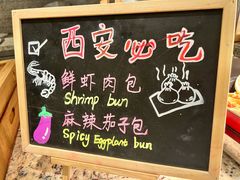 西安必吃
鲜虾肉包
Shrimp bun
麻辣茄子包
Spicy Eggplant bun